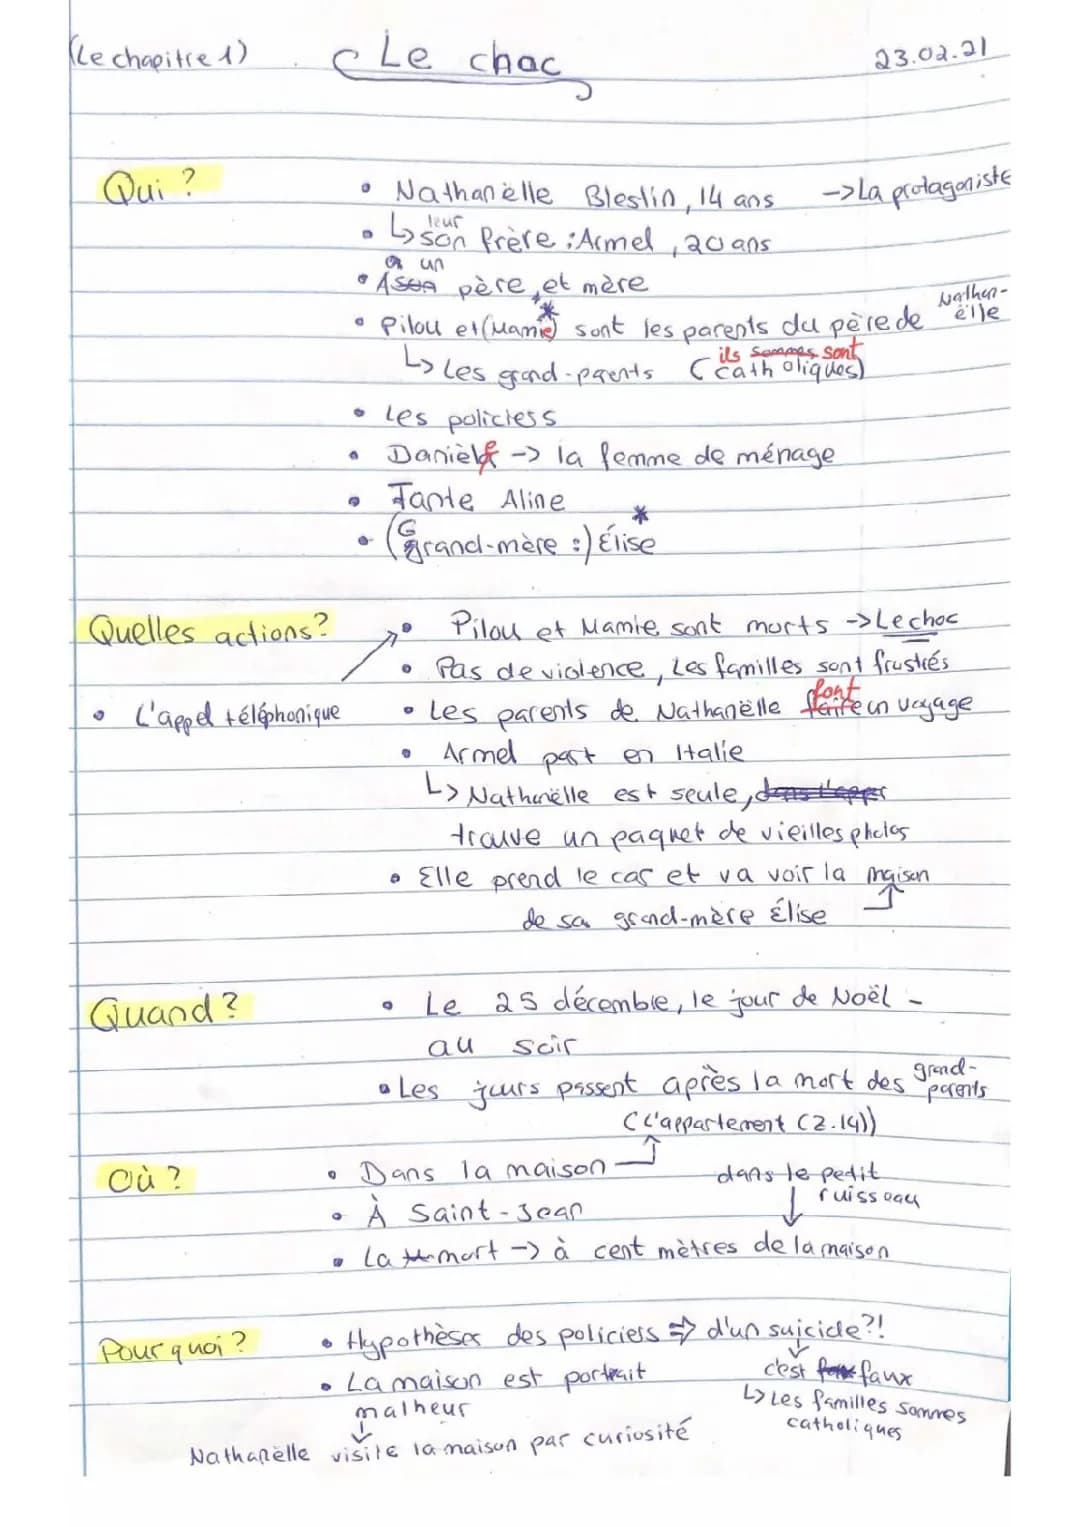 (Le chapitre 1) Le choc 23.02.21
Qui ? • Nathanëlle Bleslin, 14 ans -> La protagoniste
• ↳ leur son frère : Armel, 20 ans
un
• A père, et mère
• Pilou et (Mamie)* sont les parents du père de Nathan-ëlle
↳ Les grand-parents (ils sommes sont catholiques)
• Les policiers
• Danièle -> la femme de ménage
• Tante Aline
• (Grand-mère :) Élise *
Quelles actions? • Pilou et Mamie sont morts -> Le choc
• Pas de violence, Les familles sont frustrés
• L'appel téléphonique • Les parents de Nathanëlle font faire un voyage
• Armel part en Italie
↳ Nathanëlle est seule, dans l'apper
trouve un paquet de vieilles photos
• Elle prend le car et va voir la maison
de sa grand-mère Élise
Quand ? • Le 25 décembre, le jour de Noël -
au soir
• Les jours passent après la mort des grand-parents
(L'appartement (Z.14))
Où ? • Dans la maison dans le pedit
• À Saint-Jean ruisseau
• La mort -> à cent mètres de la maison
Pourquoi ? • Hypothèses des policiers => d'un suicide?!
• La maison est portrait c'est faux
malheur ↳ Les familles sommes
catholiques
Nathanëlle visite la maison par curiosité